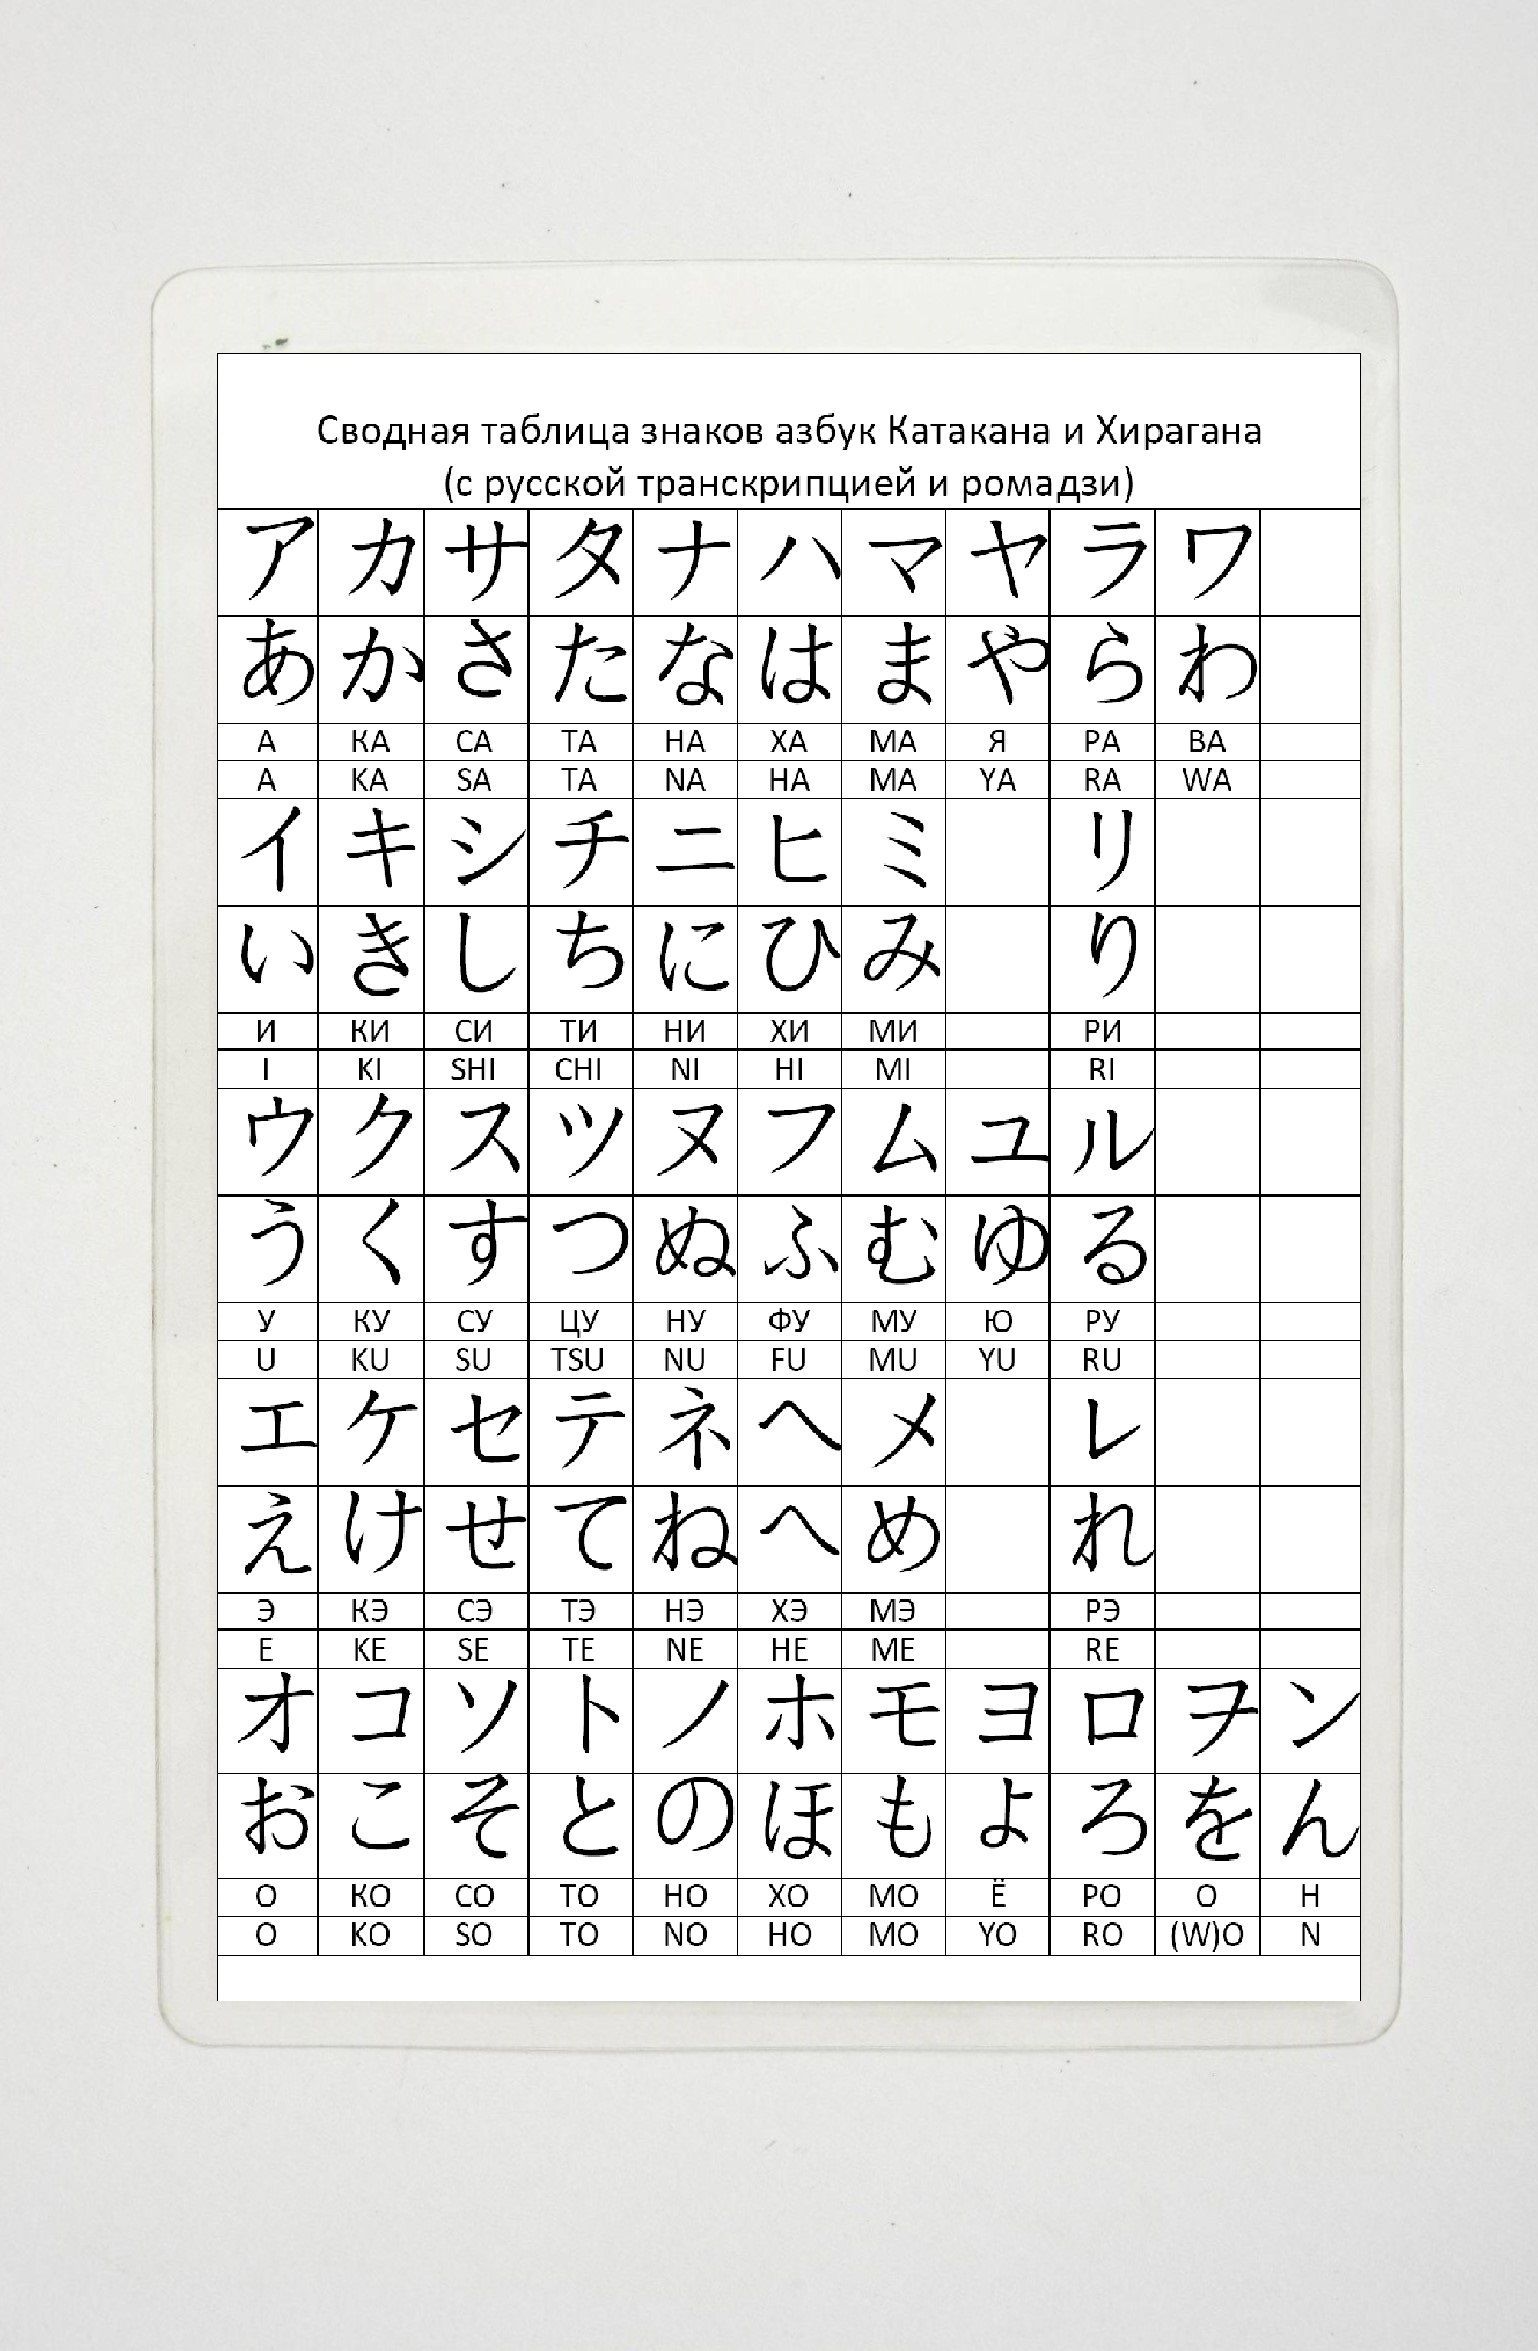 Сводная таблица знаков азбук Катакана и Хирагана
(с русской транскрипцией и ромадзи)
ア カ サ タ ナ ハ マ ヤ ラ ワ
あ か さ た な は ま や ら わ
А КА СА ТА НА ХА МА Я РА ВА
A KA SA TA NA HA MA YA RA WA
イ キ シ チ ニ ヒ ミ リ
い き し ち に ひ み り
И КИ СИ ТИ НИ ХИ МИ РИ
I KI SHI CHI NI HI MI RI
ウ ク ス ツ ヌ フ ム ユ ル
う く す つ ぬ ふ む ゆ る
У КУ СУ ЦУ НУ ФУ МУ Ю РУ
U KU SU TSU NU FU MU YU RU
エ ケ セ テ ネ ヘ メ レ
え け せ て ね へ め れ
Э КЭ СЭ ТЭ НЭ ХЭ МЭ РЭ
E KE SE TE NE HE ME RE
オ コ ソ ト ノ ホ モ ヨ ロ ヲ ン
お こ そ と の ほ も よ ろ を ん
О КО СО ТО НО ХО МО Ё РО О Н
O KO SO TO NO HO MO YO RO (W)O N